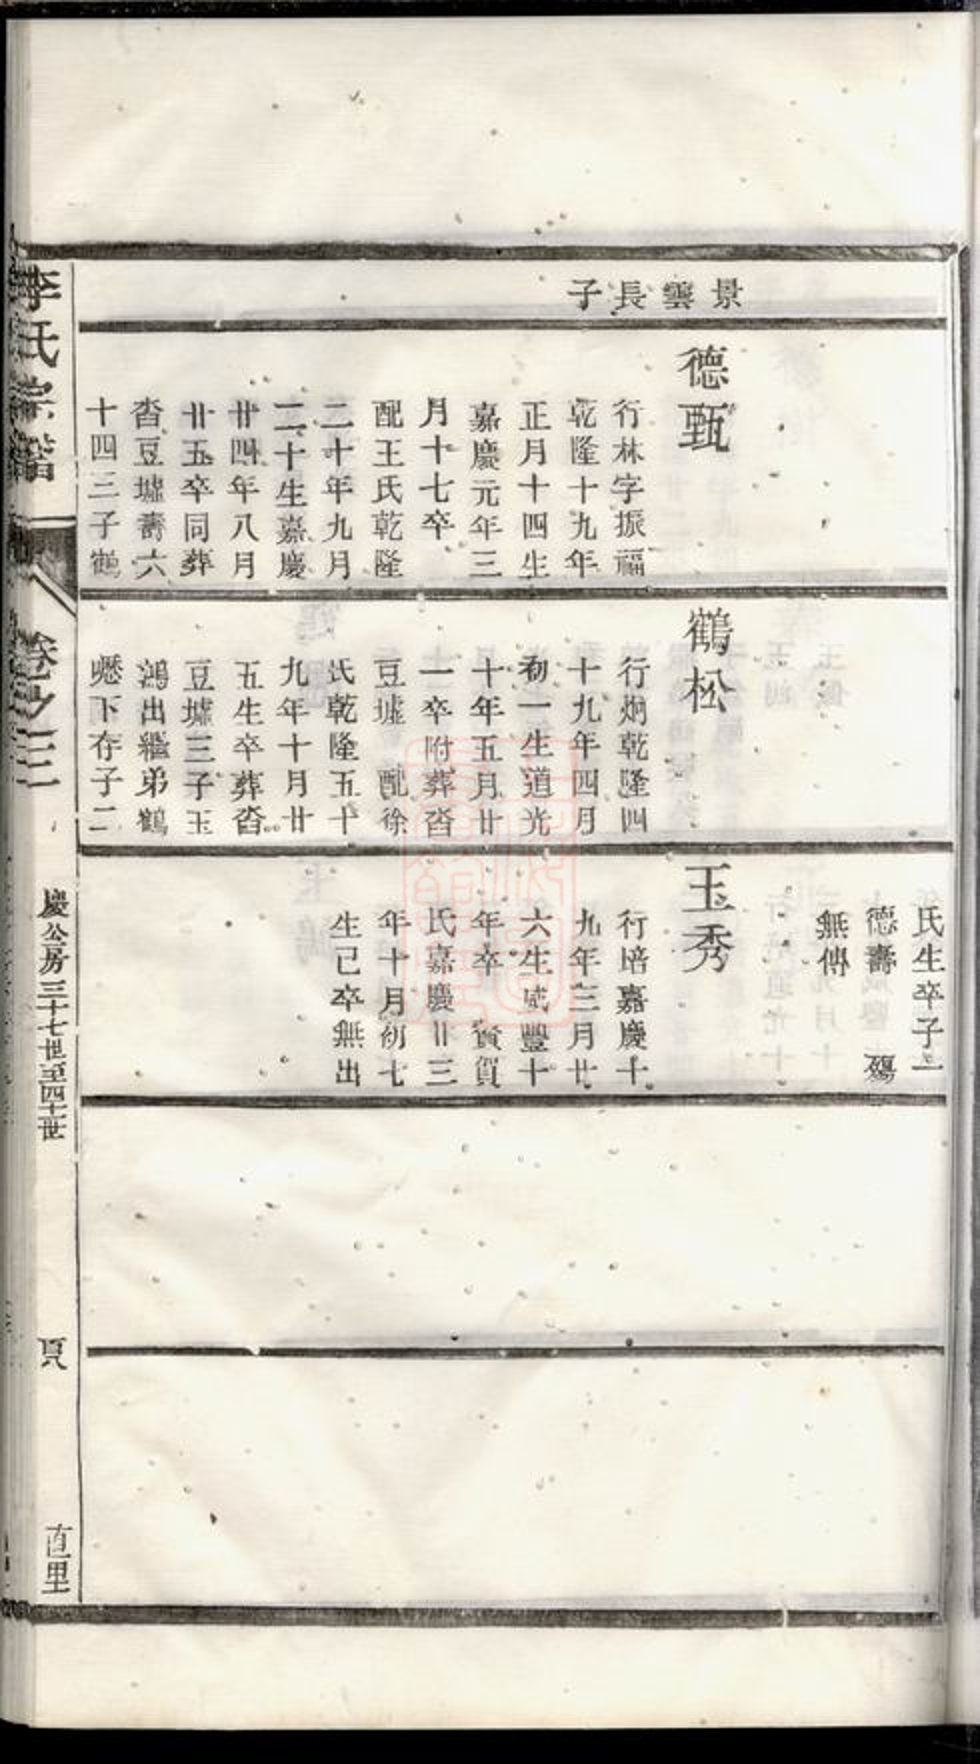 景雲長子
德甄
行林字振福
乾隆十九年
正月十四生
嘉慶元年三
月十七卒
配王氏乾隆
二十年九月
二十生嘉慶
廿四年八月
廿五卒同葬
沓豆墟壽六
十四三子鶴
鶴松
行炯乾隆四
十九年四月
初一生道光
十年五月廿
一卒附葬沓
豆墟 配徐
氏乾隆五十
九年十月廿
五生卒葬沓
豆墟三子玉
鴻出繼弟鶴
下存子二
氏生卒子二
德壽 殤
無傳
玉秀
行培嘉慶十
九年三月廿
六生咸豐十
年卒 賀
氏嘉慶廿三
年十月初七
生已卒無出
李氏宗譜
卷之三
慶公房三十七世至四十一世
頁
直里